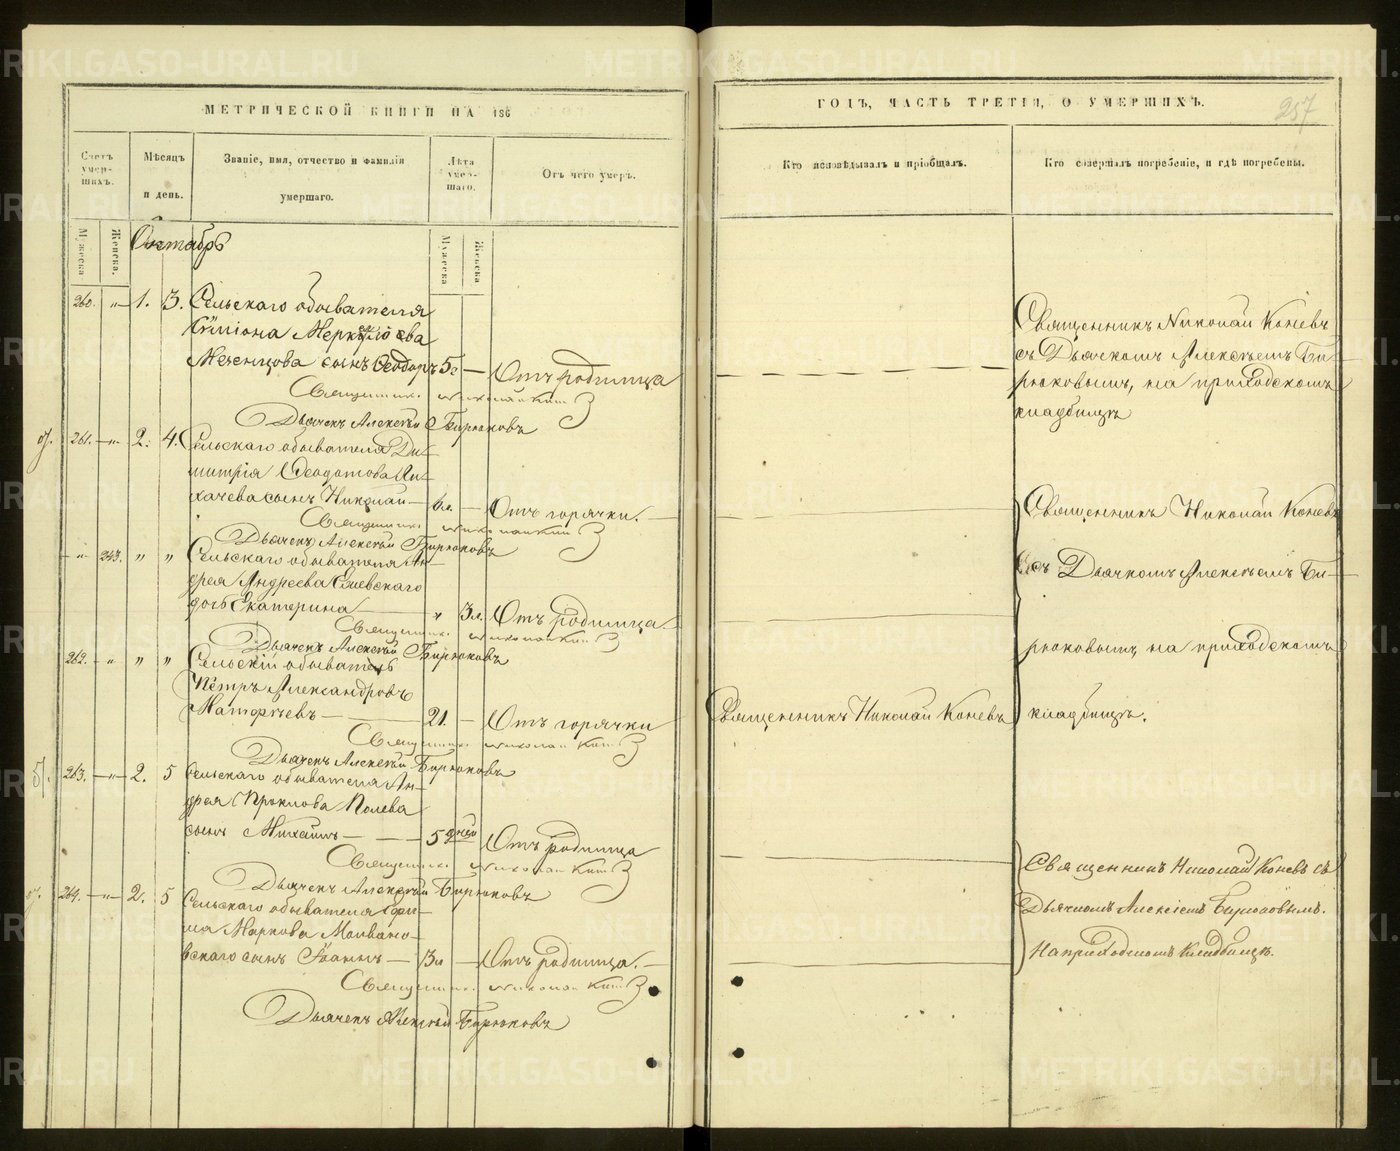 МЕТРИЧЕСКОЙ КНИГИ НА 186
Счетъ умер-шихъ.
Мѣсяцъ и день.
Званіе, имя, отчество и фамилія умершаго.
Лѣта умер-шаго.
Отъ чего умеръ.
Мужеска
Женска.
Мужеска
Женска
Октябрь
260. „ 1. 3. Сельскаго обывателя
Симіона Меркулова
Мезенцова сынъ Ѳеодоръ 5 г — Отъ родимца
Священникъ Николай
Дьячекъ Алексѣй Бирюковъ
261. „ 2. 4. Сельскаго обывателя Ди-
митрія Ѳеодотова Ли-
хачева сынъ Николай — 6 л. — Отъ горячки.
Священникъ Николай
Дьячекъ Алексѣй Бирюковъ
„ 243. „ „ Сельскаго обывателя Ан-
дрея Андреева
дочь Екатерина — „ 3 л. Отъ родимца
Священникъ Николай
Дьячекъ Алексѣй Бирюковъ
262. „ „ „ Сельскій обыватель
Петръ Александровъ
— 21. — Отъ горячки
Священникъ Николай
Дьячекъ Алексѣй Бирюковъ
263. „ 2. 5 Сельскаго обывателя Ан-
дрея Прокпова Полева
сынъ Михаилъ — 5 дней Отъ родимца
Священникъ Николай
Дьячекъ Алексѣй Бирюковъ
264. „ 2. 5 Сельскаго обывателя
Маркова Молвано-
вскаго сынъ Іоаннъ — 3 л — Отъ родимца.
Священникъ Николай
Дьячекъ Алексѣй Бирюковъ
ГОДЪ, ЧАСТЬ ТРЕТІЯ, О УМЕРШИХЪ.
257
Кто исповѣдывалъ и пріобщалъ.
Кто совершалъ погребеніе, и гдѣ погребены.
Священникъ Николай Коневъ
съ Дьячкомъ Алексѣемъ Би-
рюковымъ, на приходскомъ
кладбищѣ
Священникъ Николай Коневъ
съ Дьячкомъ Алексѣемъ Би-
рюковымъ, на приходскомъ
Священникъ Николай Коневъ
кладбищѣ.
Священникъ Николай Коневъ съ
Дьячкомъ Алексіемъ Бирюковымъ.
На приходскомъ кладбищѣ.
METRIKI.GASO-URAL.RU